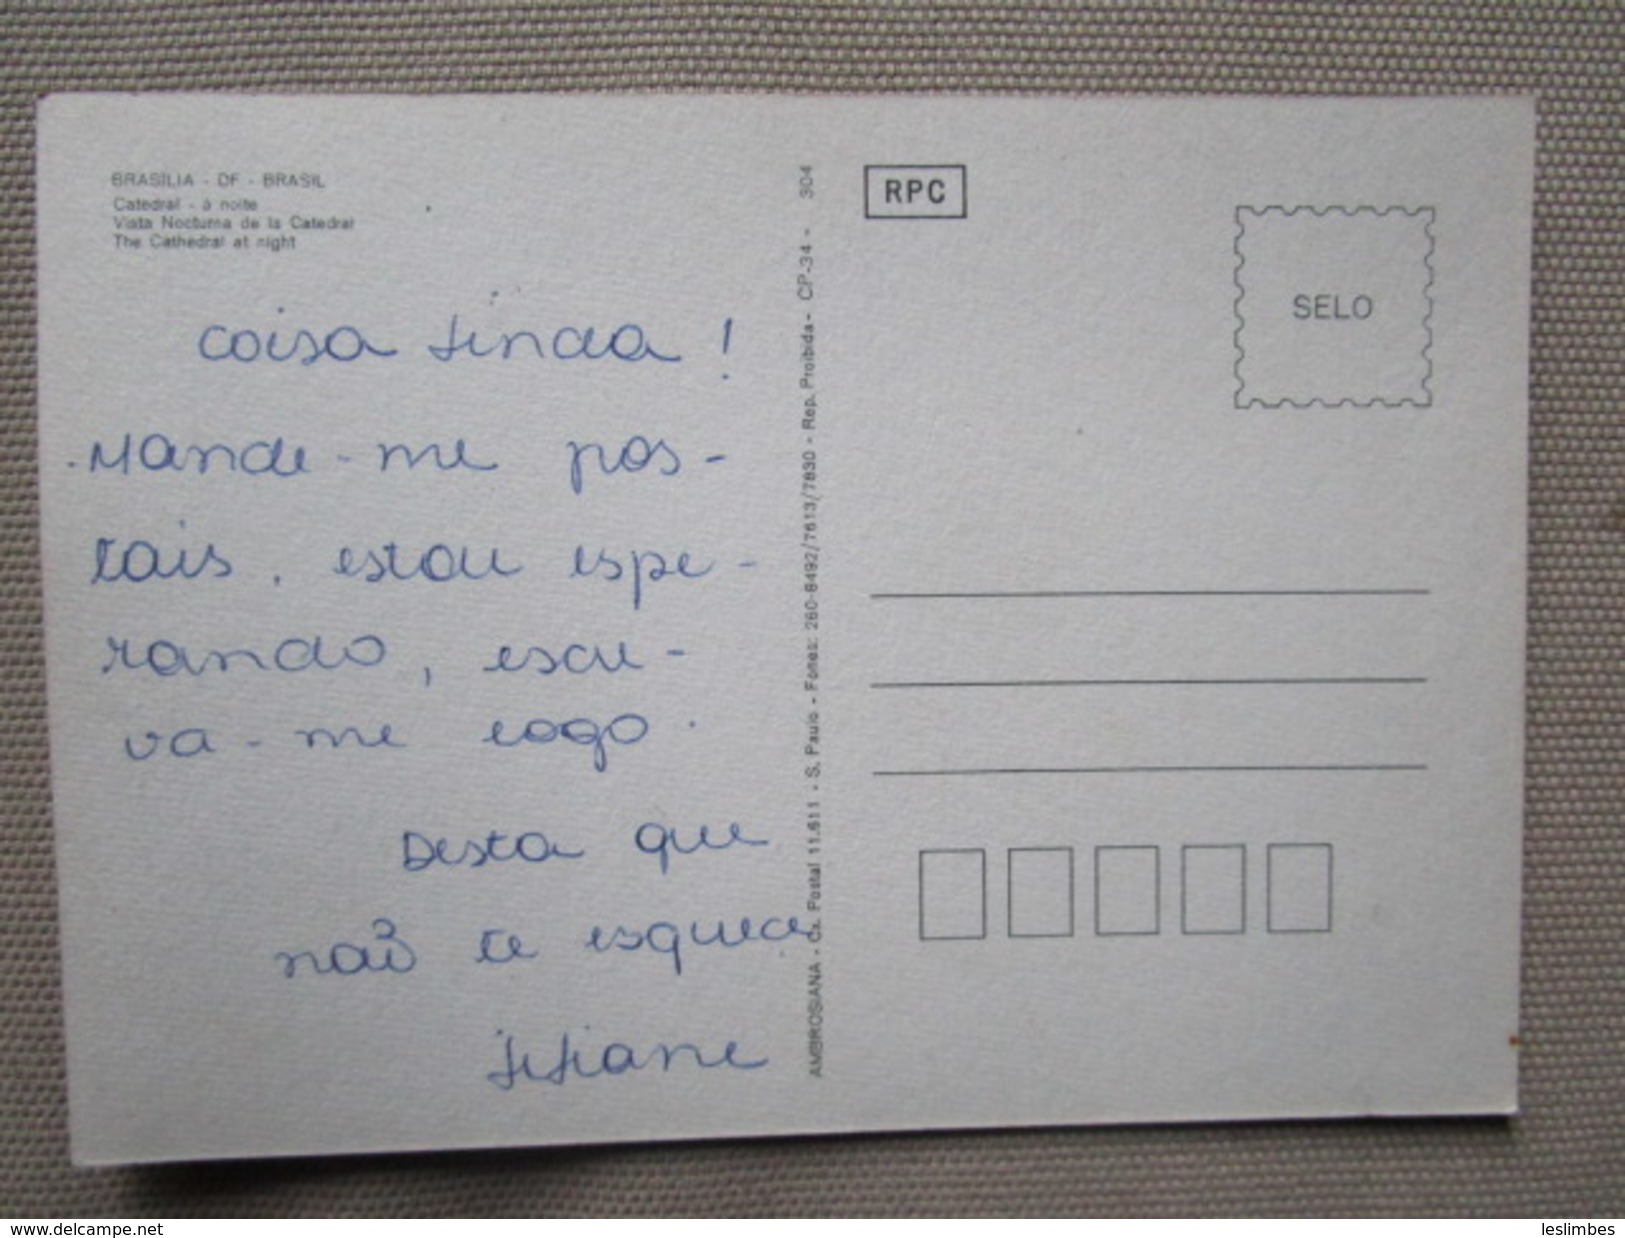 BRASÍLIA - DF - BRASIL
Catedral - à noite
Vista Nocturna de la Catedral
The Cathedral at night
Coisa linda!
Mande-me pos-
tais, estou espe-
rando, escre-
va-me logo.
Desta que
não te esquece
AMBROSIANA - Cx. Postal 11.611 - S. Paulo - Fones: 260-8492/7613/7830 - Rep. Proibida - CP-34 - 304
RPC
SELO
www.delcampe.net
leslimbes